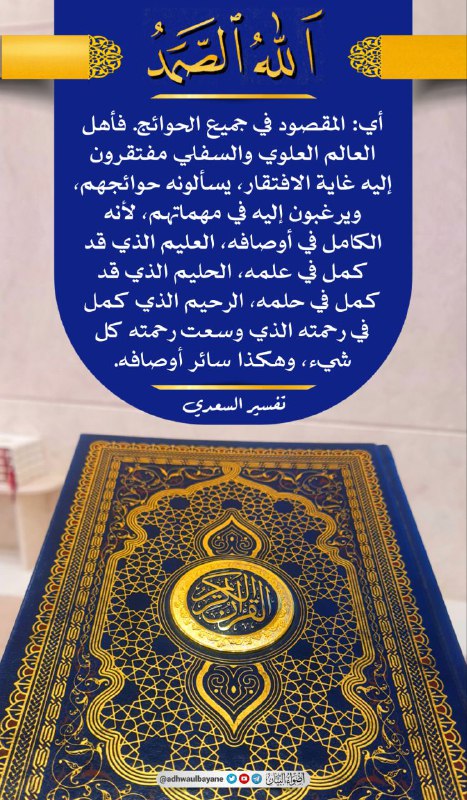 اَللّٰهُ ٱلصَّمَدُ
أي: المقصود في جميع الحوائج. فأهل
العالم العلوي والسفلي مفتقرون
إليه غاية الافتقار، يسألونه حوائجهم،
ويرغبون إليه في مهماتهم، لأنه
الكامل في أوصافه، العليم الذي قد
كمل في علمه، الحليم الذي قد
كمل في حلمه، الرحيم الذي كمل
في رحمته الذي وسعت رحمته كل
شيء، وهكذا سائر أوصافه.
تفسير السعدي
القرآن الكريم
@adhwaulbayane أضواء البيان